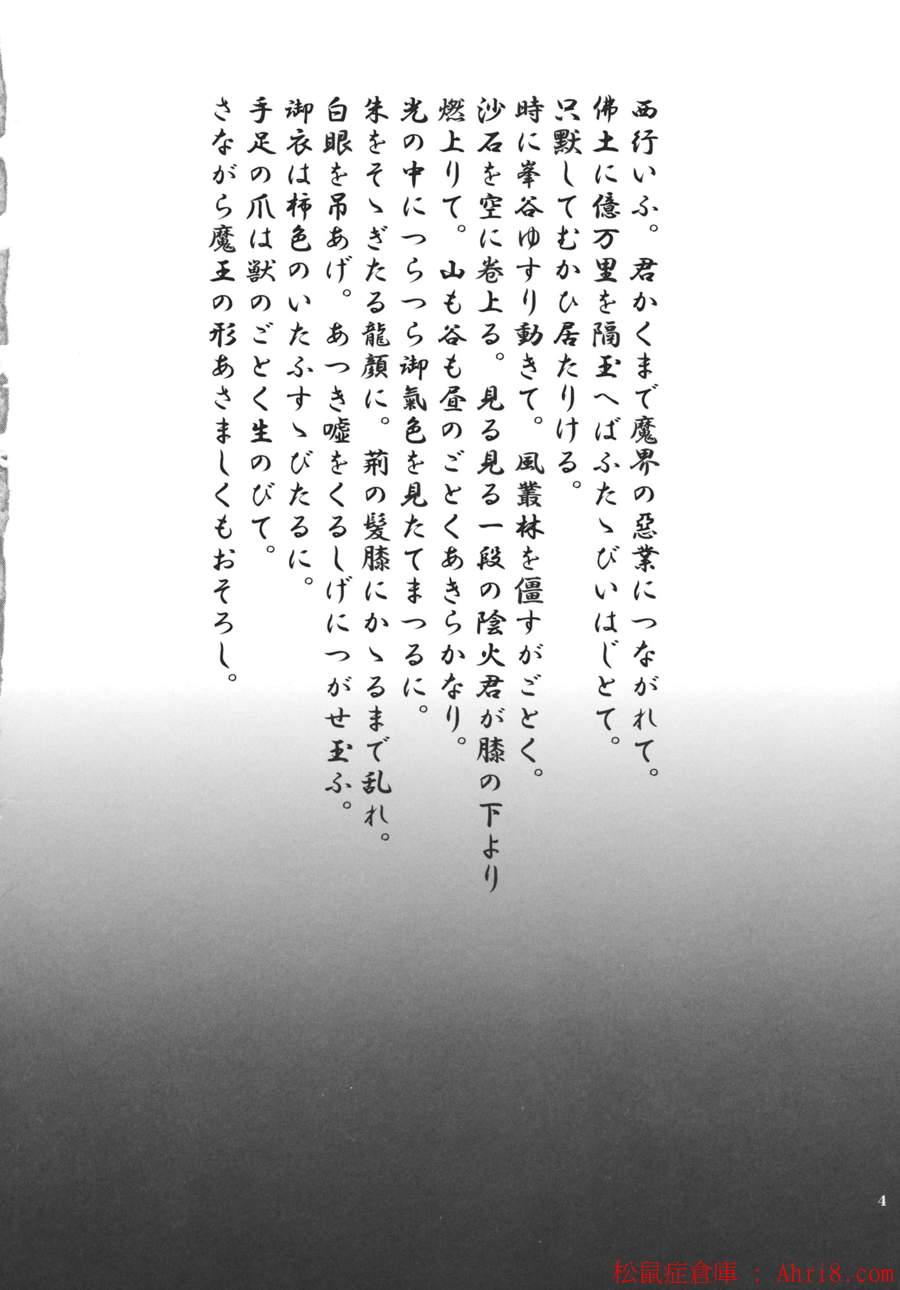 西行いふ。君かくまで魔界の惡業につながれて。
佛土に億万里を隔玉へばふたゝびいはじとて。
只默してむかひ居たりける。
時に峯谷ゆすり動きて。風叢林を僵すがごとく。
沙石を空に卷上る。見る見る一段の陰火君が膝の下より
燃上りて。山も谷も昼のごとくあきらかなり。
光の中につらつら御氣色を見たてまつるに。
朱をそゝぎたる龍顏に。荊の髮膝にかゝるまで乱れ。
白眼を吊あげ。あつき嘘をくるしげにつがせ玉ふ。
御衣は柿色のいたふすゝびたるに。
手足の爪は獣のごとく生のびて。
さながら魔王の形あさましくもおそろし。
4
松鼠症倉庫 : Ahri8.com